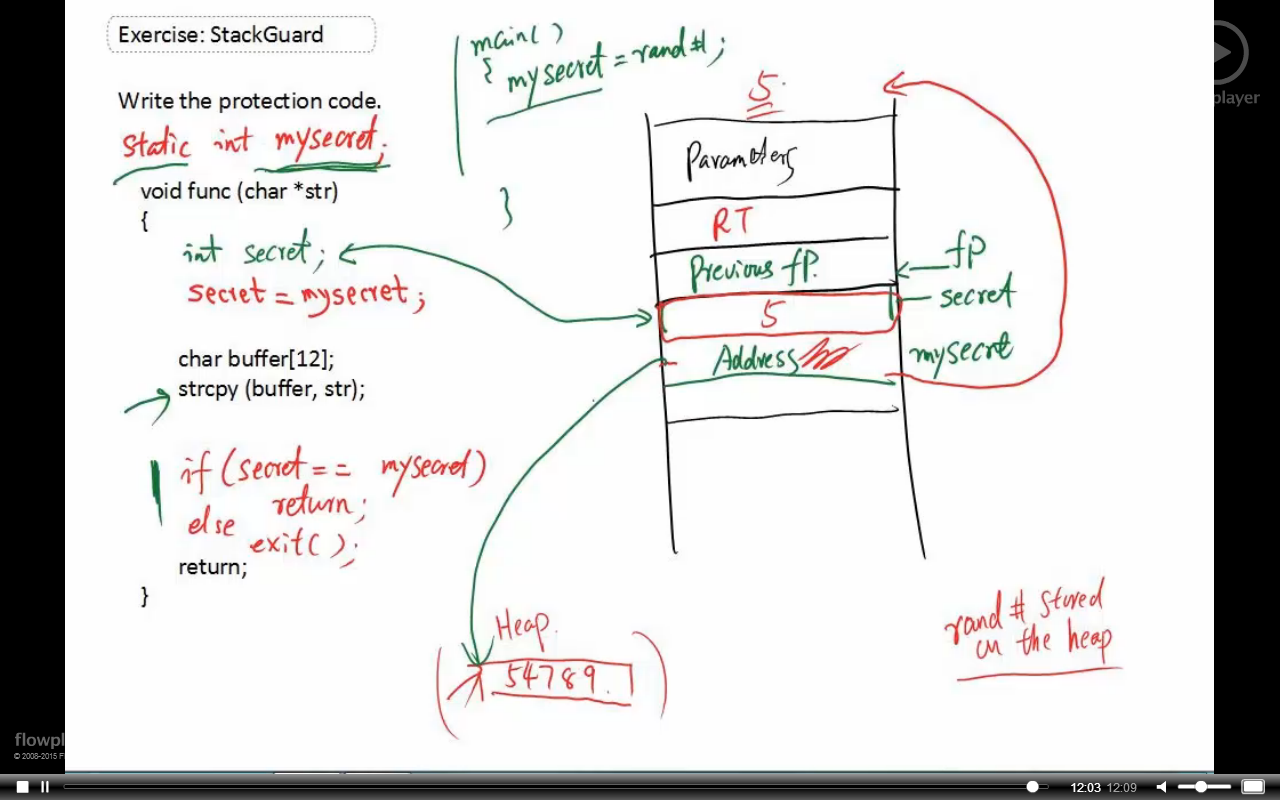 Exercise: StackGuard
main( )
{ mysecret = rand #;
}
Write the protection code.
static int mysecret;
void func (char *str)
{
int secret;
secret = mysecret;
char buffer[12];
strcpy (buffer, str);
if (secret == mysecret)
return;
else
exit( );
return;
}
5
Parameters
RT
Previous fp.
fp
secret
5
Address
mysecret
Heap.
54789.
rand # stored
on the heap
player
flowpl
© 2008-2015 Fl
12:03 12:09